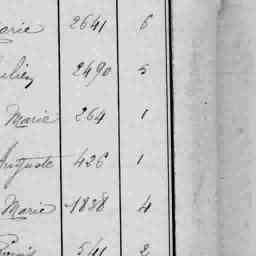 Marie 2641 6
2490 5
Marie 264 1
Auguste 426 1
Marie 1838 4
541 2